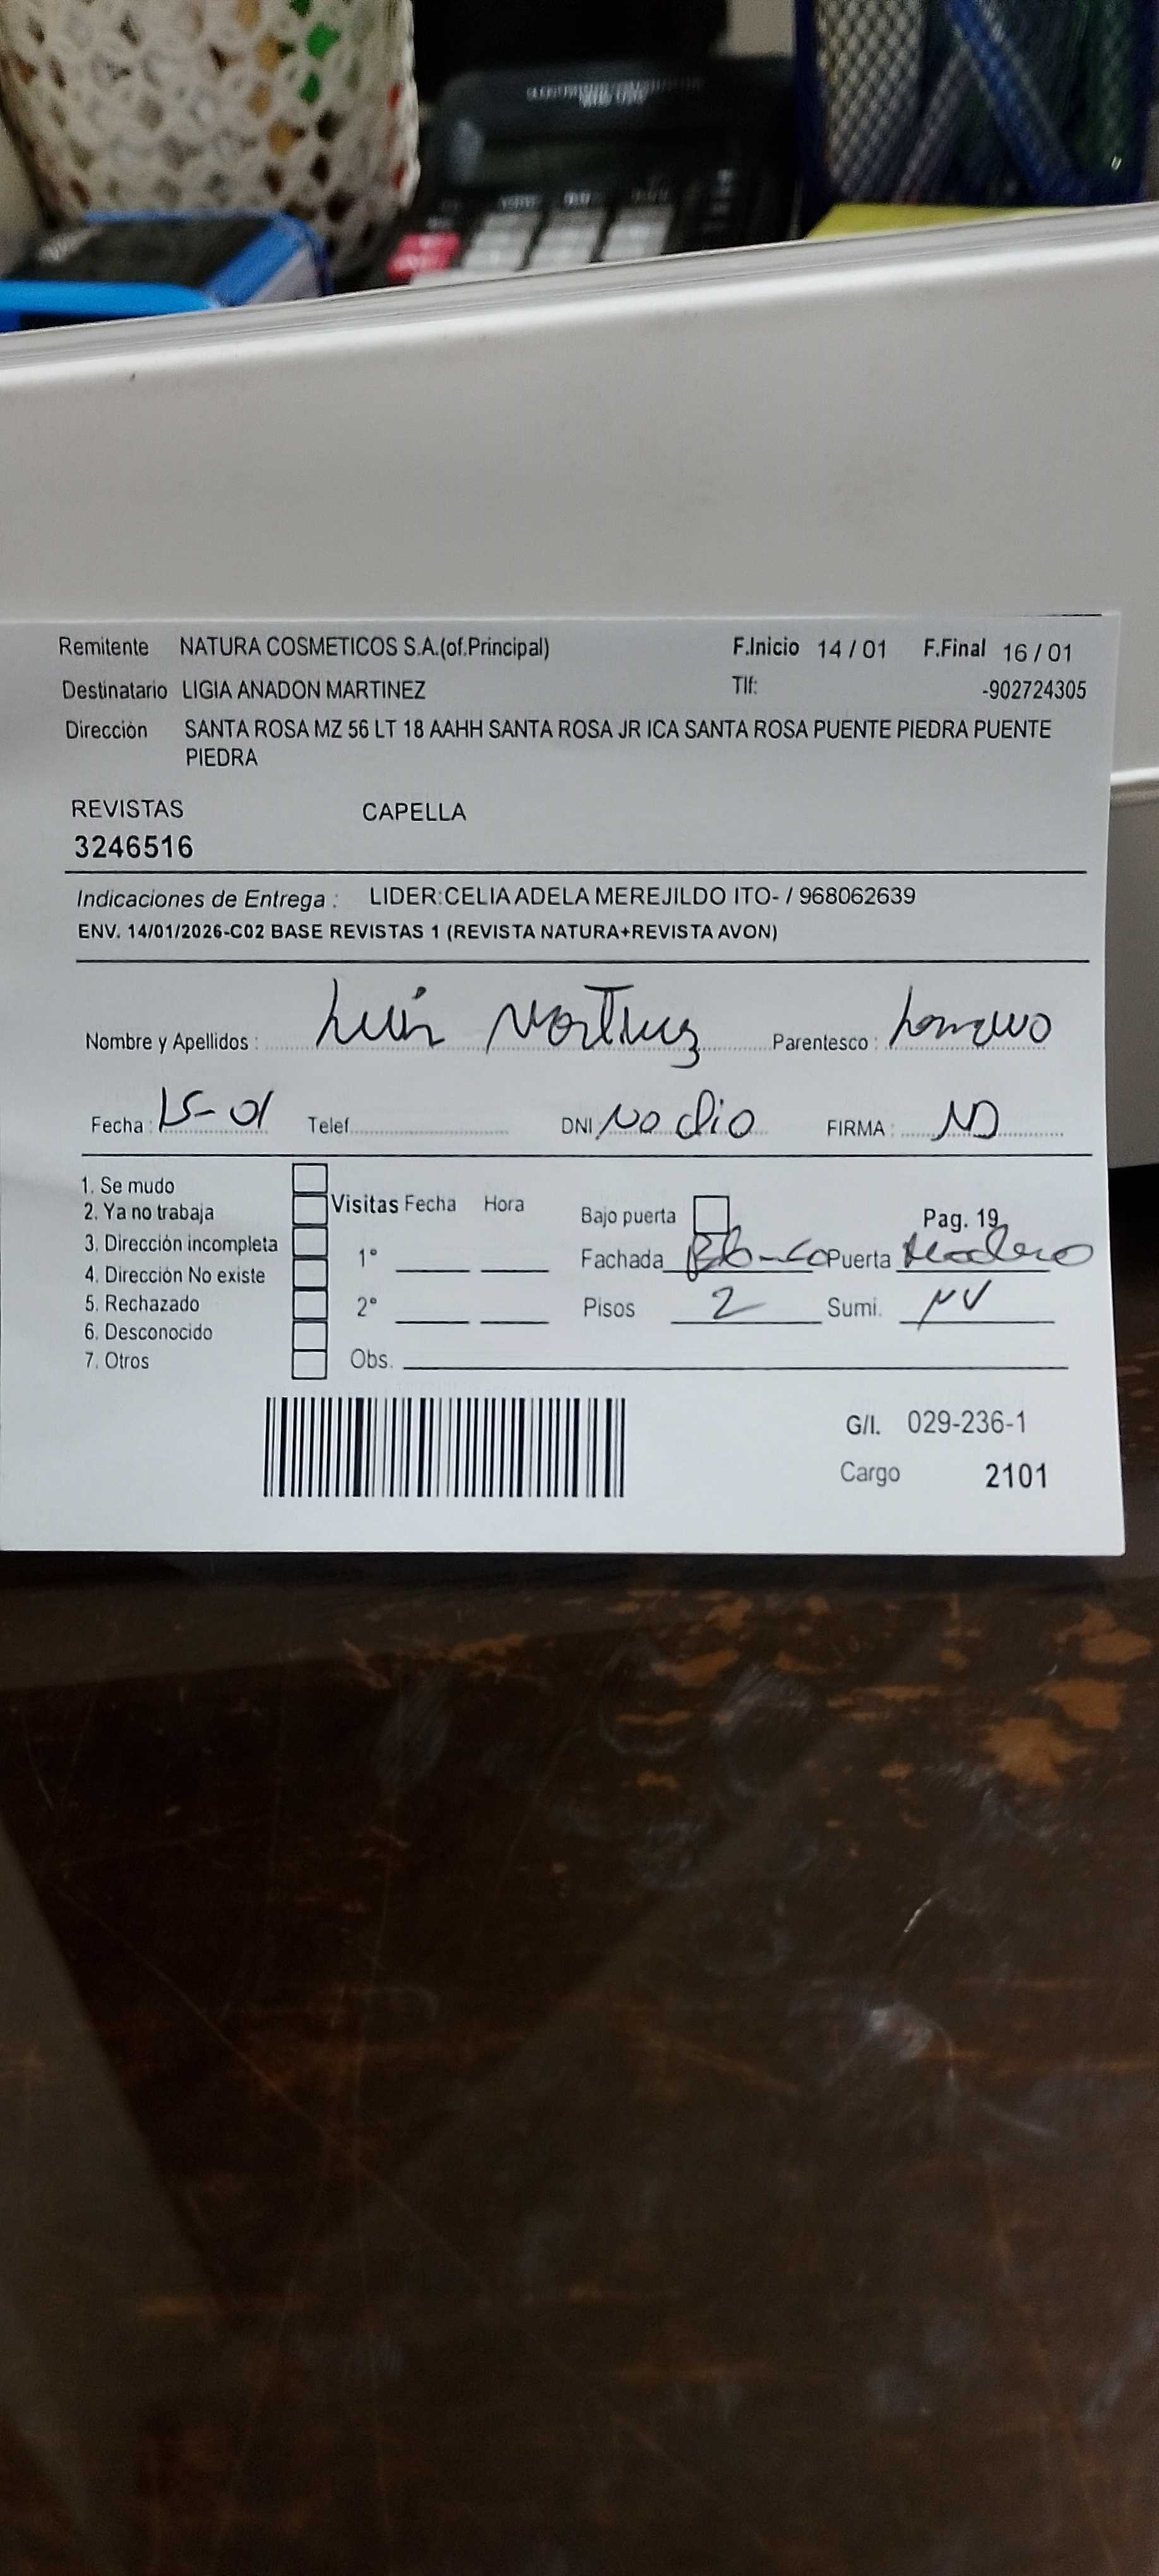 Remitente NATURA COSMETICOS S.A.(of.Principal) F.Inicio 14 / 01 F.Final 16 / 01
Destinatario LIGIA ANADON MARTINEZ Tlf: -902724305
Dirección SANTA ROSA MZ 56 LT 18 AAHH SANTA ROSA JR ICA SANTA ROSA PUENTE PIEDRA PUENTE
PIEDRA
REVISTAS CAPELLA
3246516
Indicaciones de Entrega : LIDER:CELIA ADELA MEREJILDO ITO- / 968062639
ENV. 14/01/2026-C02 BASE REVISTAS 1 (REVISTA NATURA+REVISTA AVON)
Nombre y Apellidos : Martinez Parentesco :
Fecha : 15-01 Telef. DNI: No dio FIRMA :
1. Se mudo
2. Ya no trabaja Visitas Fecha Hora Bajo puerta Pag. 19
3. Dirección incompleta 1° Fachada Blanco Puerta Madera
4. Dirección No existe
5. Rechazado 2° Pisos 2 Sumi. NV
6. Desconocido
7. Otros Obs.
G/I. 029-236-1
Cargo 2101